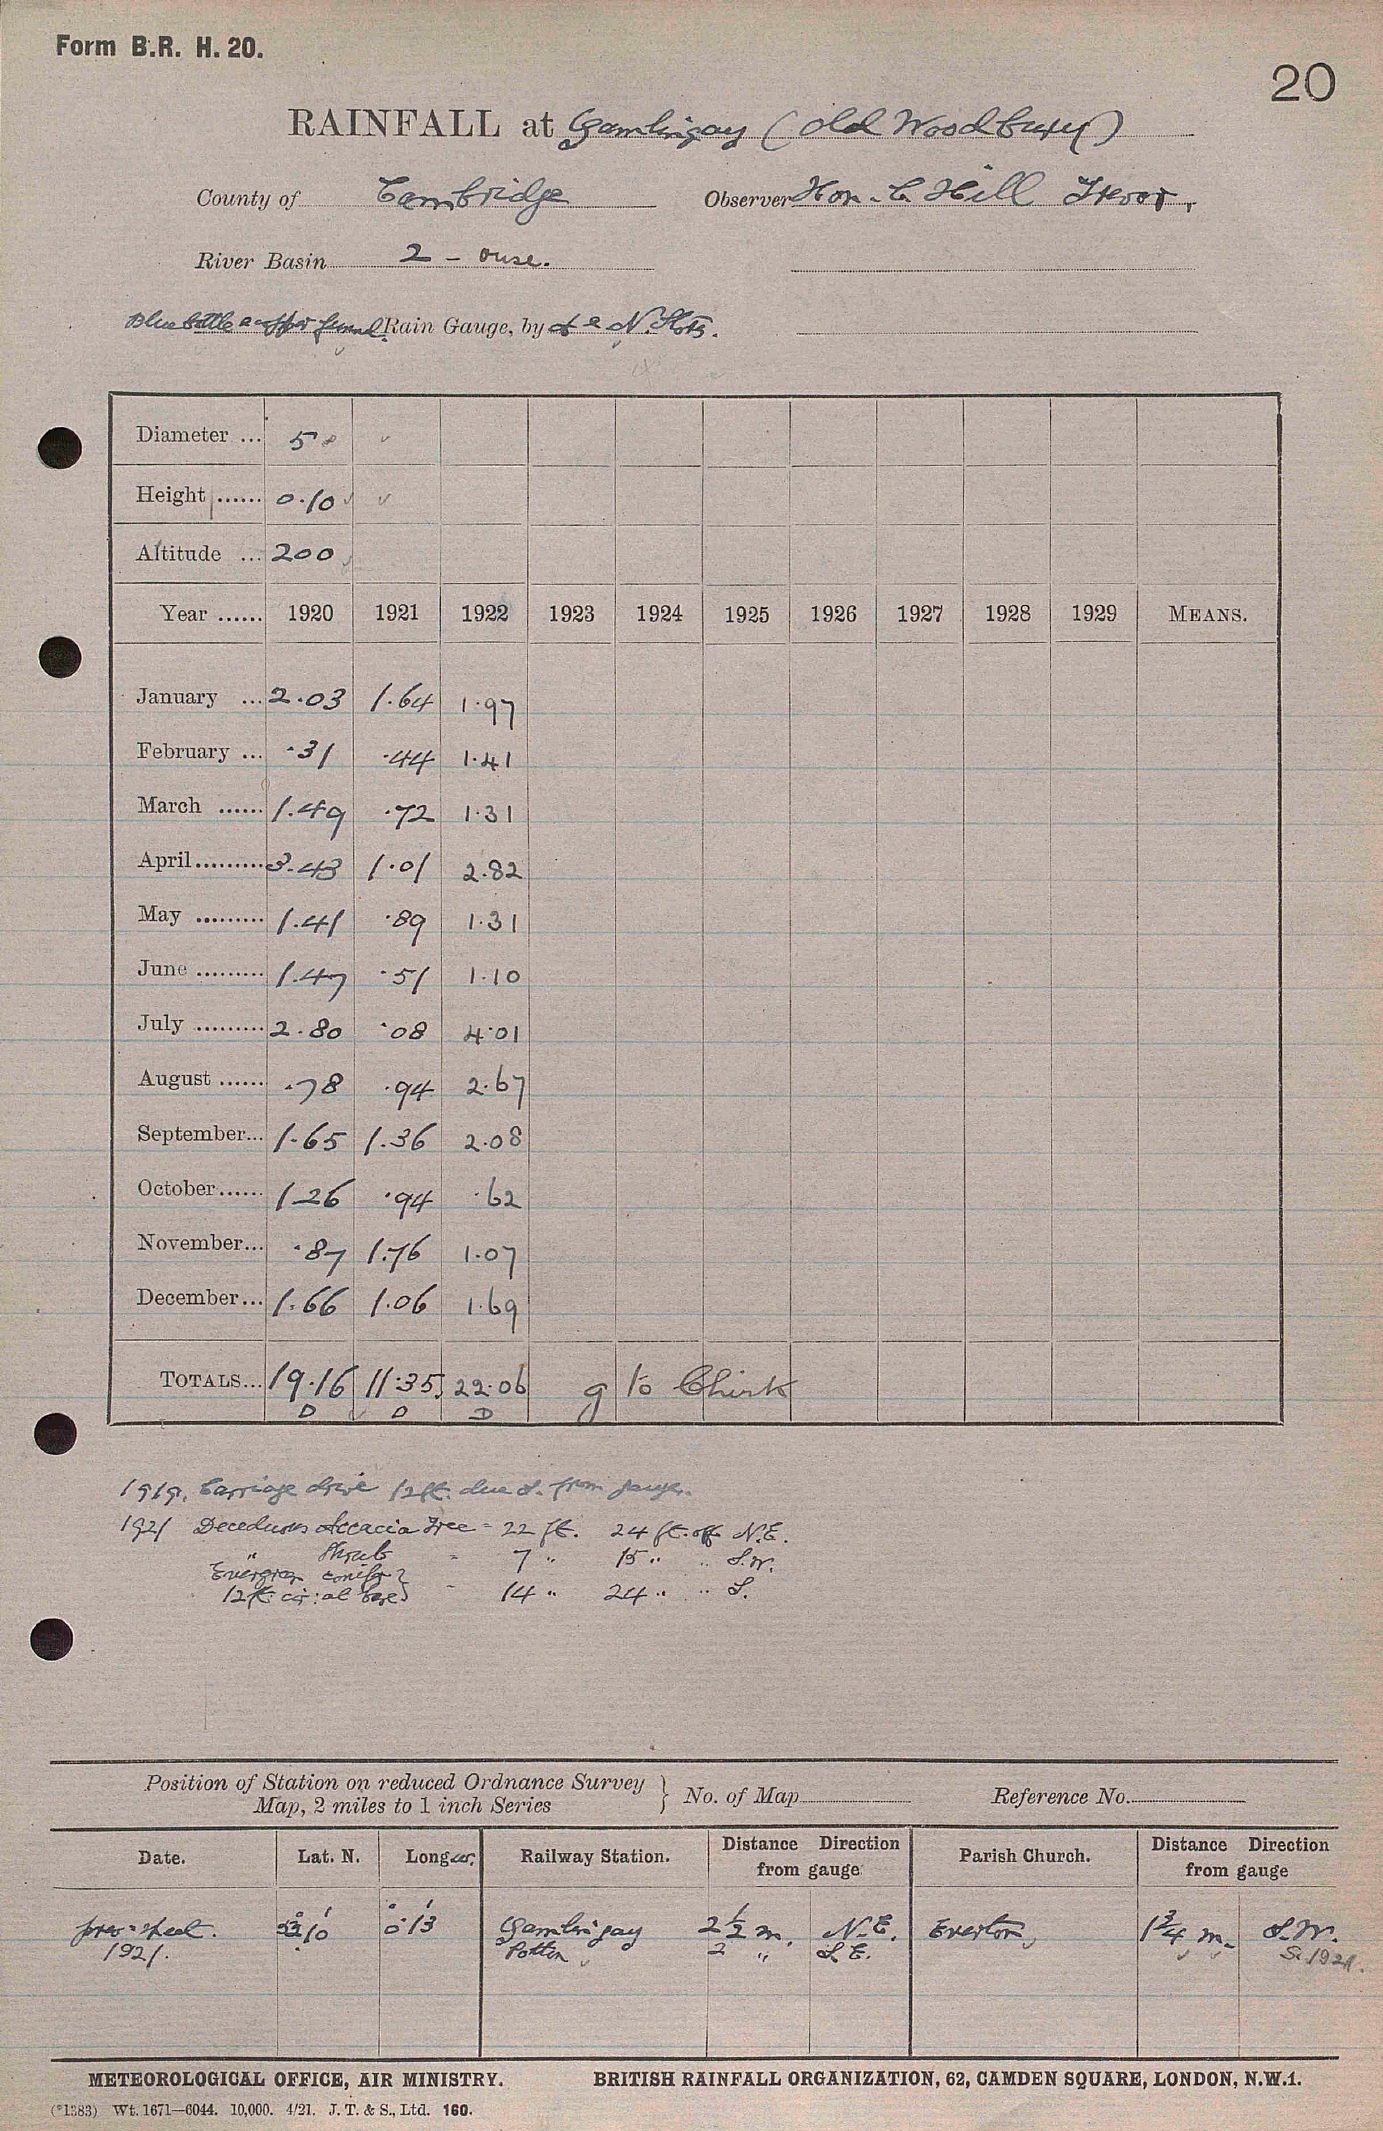 Form B.R. H. 20.
20
RAINFALL at Gamlingay (Old Woodbury)
County of Cambridge Observer Hon. C. Hill Trevor,
River Basin 2 - Ouse.
Blue bottle copper funnel Rain Gauge, by A & N. Stores.
Diameter ... 5
Height ...... 0.10
Altitude ... 200
Year ...... 1920 1921 1922 1923 1924 1925 1926 1927 1928 1929 MEANS.
January ... 2.03 1.64 1.97
February ... .31 .44 1.41
March ...... 1.49 .72 1.31
April ......... 3.43 1.01 2.82
May ......... 1.41 .89 1.31
June ......... 1.47 .51 1.10
July ......... 2.80 .08 4.01
August ...... .78 .94 2.67
September... 1.65 1.36 2.08
October...... 1.26 .94 .62
November... .87 1.76 1.07
December... 1.66 1.06 1.69
TOTALS... 19.16 11.35 22.06 g to Chirk
D D D
1919. Carriage drive 12 ft. due S. from gauge.
1921 Deceduous Accacia Tree = 22 ft. 24 ft. off N.E.
" Shrub - 7 " 15 " " S.W.
Evergreen conifer
12 ft. cir: at base - 14 " 24 " " S.
Position of Station on reduced Ordnance Survey } No. of Map Reference No.
Map, 2 miles to 1 inch Series
Date. Lat. N. Long W. Railway Station. Distance Direction from gauge Parish Church. Distance Direction from gauge
prev. sheet. 52° 10' 0° 13' Gamlingay 2½ m. N.E. Everton 1¾ m. S.W.
1921. Potton 2 " S.E. S. 1921.
METEOROLOGICAL OFFICE, AIR MINISTRY. BRITISH RAINFALL ORGANIZATION, 62, CAMDEN SQUARE, LONDON, N.W.1.
(*1383) Wt. 1671—6044. 10,000. 4/21. J. T. & S., Ltd. 160.